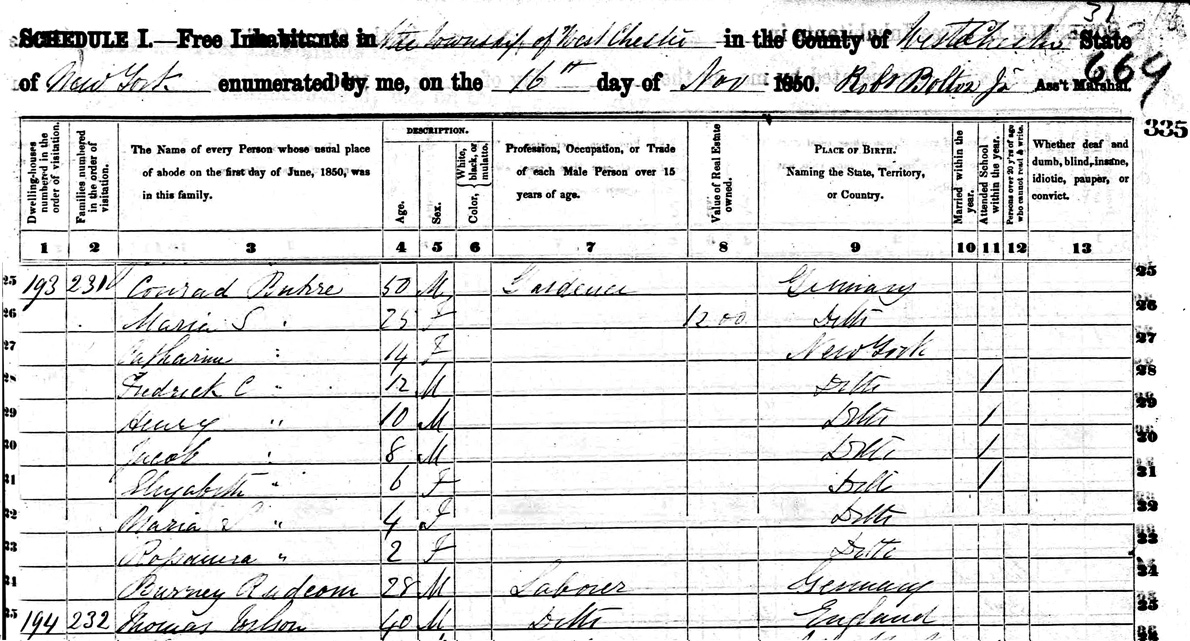 SCHEDULE I.—Free Inhabitants in the township of West Chester in the County of WestChester State
of New York enumerated by me, on the 16th day of Nov 1850. Robt Bolton Jr Ass't Marshal.
669
335
Dwelling-houses numbered in the order of visitation.
Families numbered in the order of visitation.
The Name of every Person whose usual place
of abode on the first day of June, 1850, was
in this family.
DESCRIPTION.
Age.
Sex.
Color, White, black, or mulatto.
Profession, Occupation, or Trade
of each Male Person over 15
years of age.
Value of Real Estate owned.
PLACE OF BIRTH.
Naming the State, Territory,
or Country.
Married within the year.
Attended School within the year.
Persons over 20 y'rs of age who cannot read & write.
Whether deaf and
dumb, blind, insane,
idiotic, pauper, or
convict.
1 2 3 4 5 6 7 8 9 10 11 12 13
25 193 231 Conrad Buhre 50 M Gardener Germany 25
26 Maria S " 25 F 1200 Ditto 26
27 Catharine " 14 F New York 27
28 Fredrick C " 12 M Ditto / 28
29 Henry " 10 M Ditto / 29
30 Jacob " 8 M Ditto / 30
31 Elizabeth " 6 F Ditto / 31
32 Maria " 4 F Ditto 32
33 2 F Ditto 33
34 Burney Radcom 28 M Labourer Germany 34
35 194 232 Thomas Wilson 40 M Ditto England 35